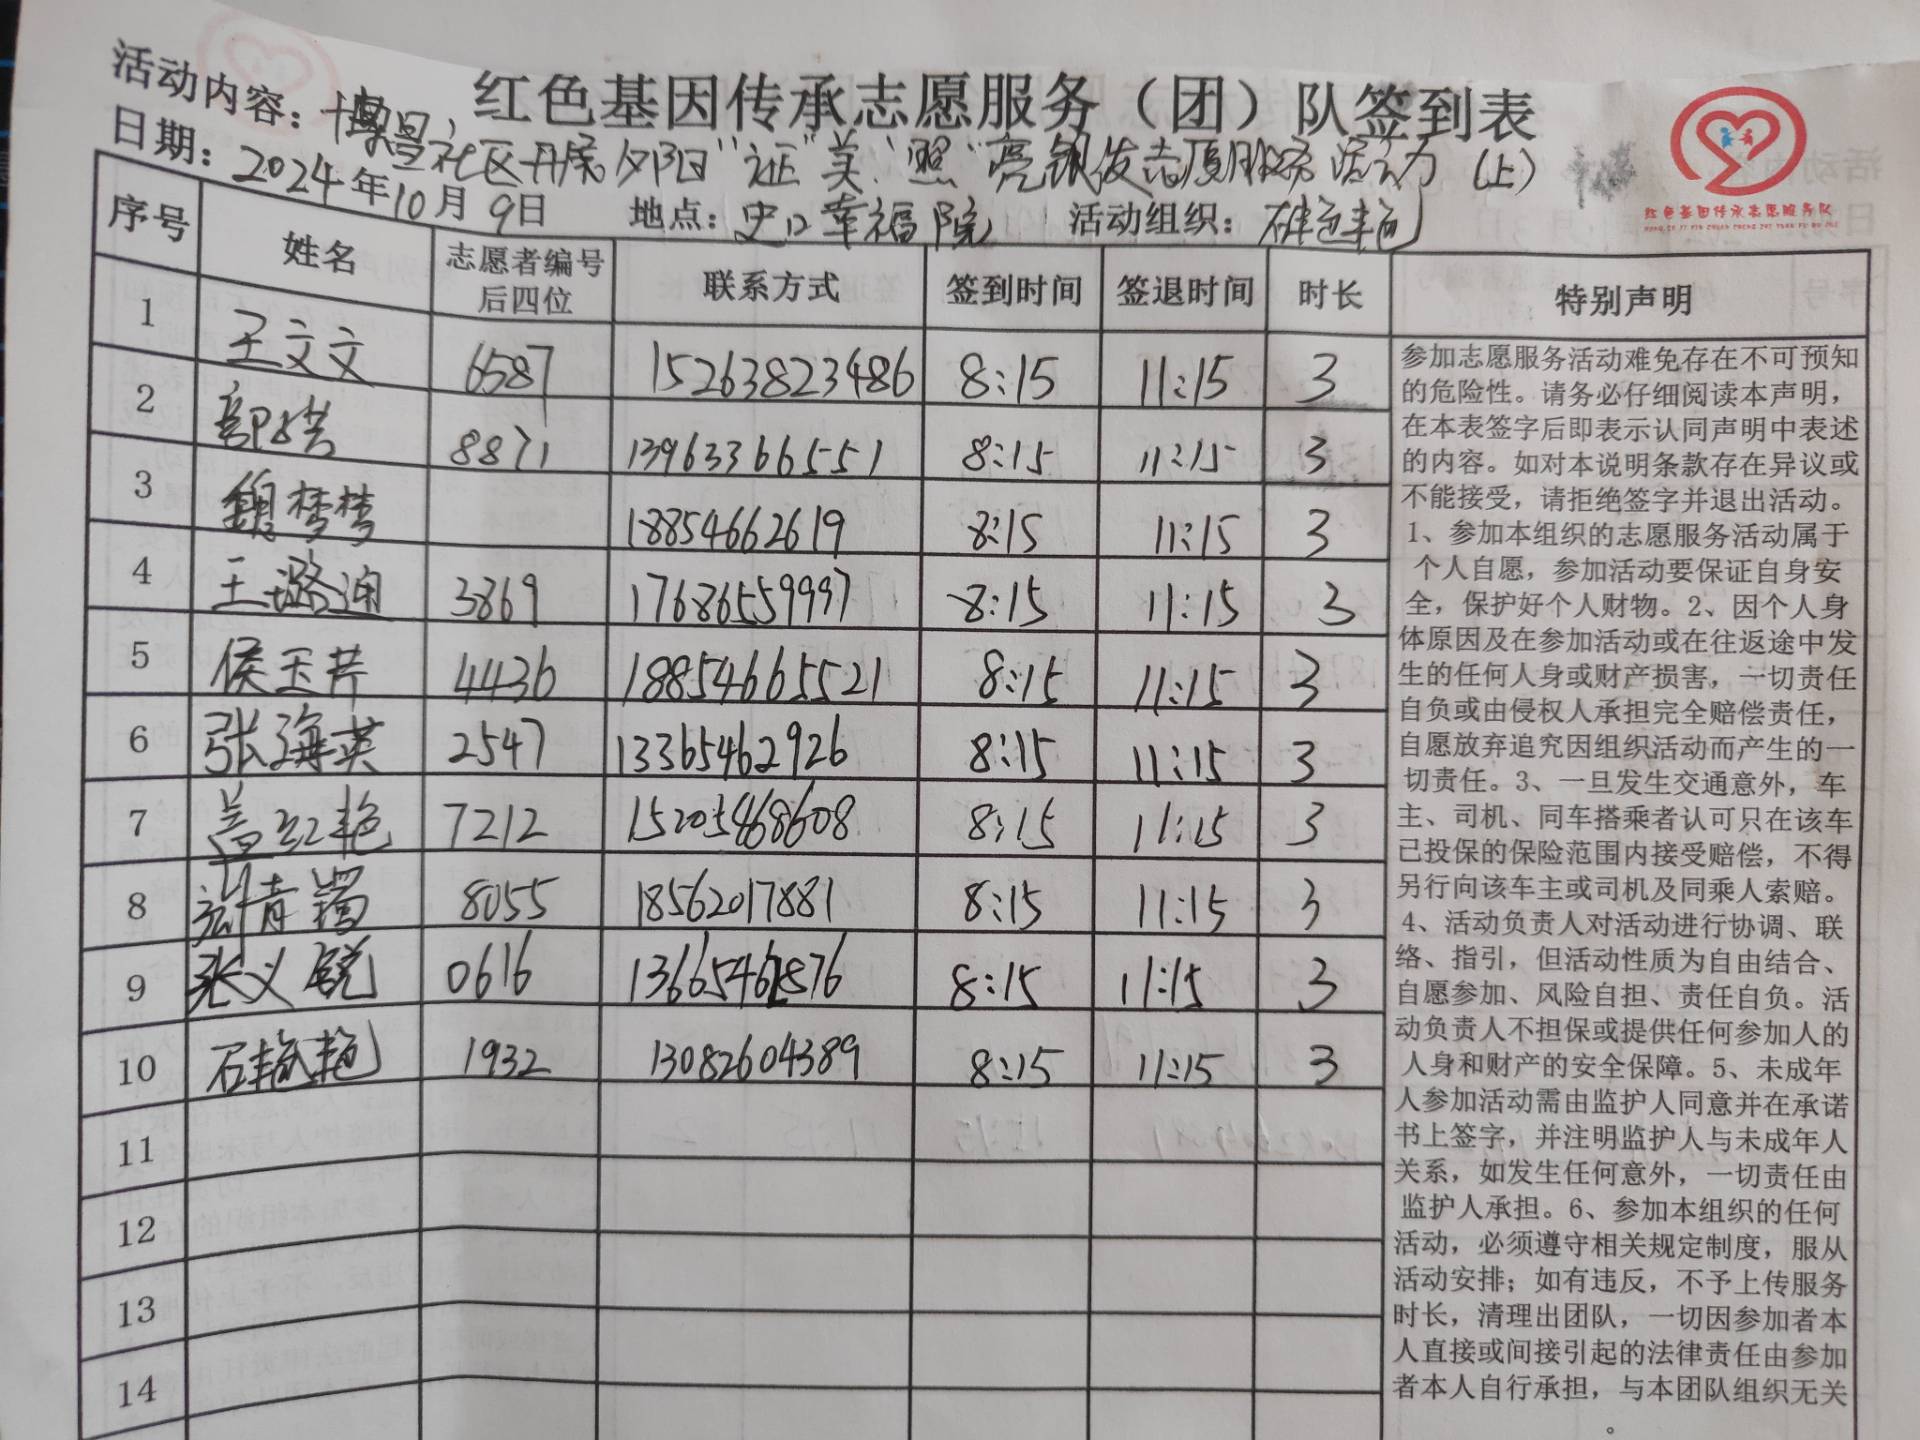 红色基因传承志愿服务（团）队签到表
活动内容：博昌社区开展夕阳"证"美，"照"亮银发志愿服务活动（上）
日期：2024年10月9日 地点：史口幸福院 活动组织：石艳艳
红色基因传承志愿服务队
序号 姓名 志愿者编号后四位 联系方式 签到时间 签退时间 时长 特别声明
1 王文文 6587 15263823486 8:15 11:15 3
2 8871 13963366551 8:15 11:15 3
3 魏梦梦 18854662619 8:15 11:15 3
4 王璐 3869 17686559997 8:15 11:15 3
5 侯玉芹 4436 18854665521 8:15 11:15 3
6 张海英 2547 13365462926 8:15 11:15 3
7 盖红艳 7212 15205468608 8:15 11:15 3
8 青 8055 18562017881 8:15 11:15 3
9 张义锐 0616 8:15 11:15 3
10 石艳艳 1932 13082604389 8:15 11:15 3
11
12
13
14
参加志愿服务活动难免存在不可预知
的危险性。请务必仔细阅读本声明，
在本表签字后即表示认同声明中表述
的内容。如对本说明条款存在异议或
不能接受，请拒绝签字并退出活动。
1、参加本组织的志愿服务活动属于
个人自愿，参加活动要保证自身安
全，保护好个人财物。2、因个人身
体原因及在参加活动或在往返途中发
生的任何人身或财产损害，一切责任
自负或由侵权人承担完全赔偿责任，
自愿放弃追究因组织活动而产生的一
切责任。3、一旦发生交通意外，车
主、司机、同车搭乘者认可只在该车
已投保的保险范围内接受赔偿，不得
另行向该车主或司机及同乘人索赔。
4、活动负责人对活动进行协调、联
络、指引，但活动性质为自由结合、
自愿参加、风险自担、责任自负。活
动负责人不担保或提供任何参加人的
人身和财产的安全保障。5、未成年
人参加活动需由监护人同意并在承诺
书上签字，并注明监护人与未成年人
关系，如发生任何意外，一切责任由
监护人承担。6、参加本组织的任何
活动，必须遵守相关规定制度，服从
活动安排；如有违反，不予上传服务
时长，清理出团队，一切因参加者本
人直接或间接引起的法律责任由参加
者本人自行承担，与本团队组织无关
。